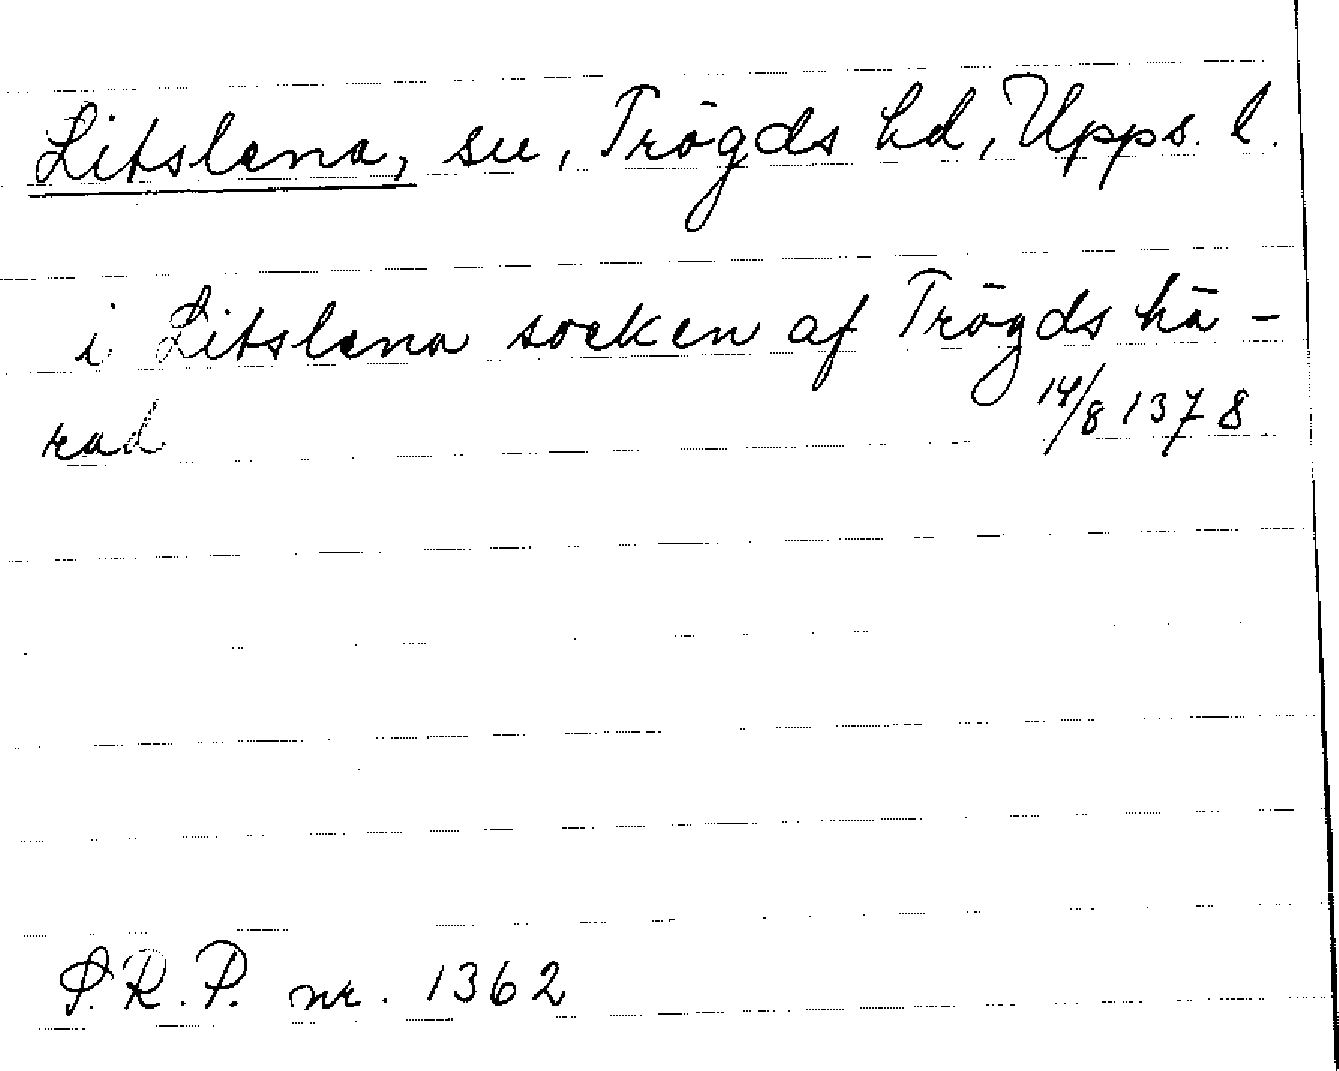 Litslena, sn, Trögds hd, Upps. l.
i Litslena socken af Trögds hä-
rad 14/8 1378
S.R.P. nr. 1362